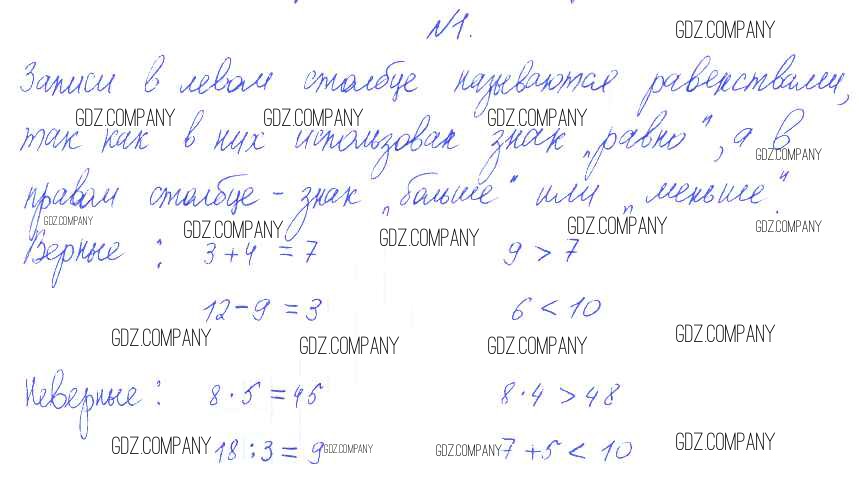 №1.
GDZ.COMPANY
Записи в левом столбце называются равенствами,
GDZ.COMPANY GDZ.COMPANY GDZ.COMPANY
так как в них использован знак „равно“, а в
GDZ.COMPANY
правом столбце - знак „больше“ или „меньше“.
GDZ.COMPANY GDZ.COMPANY GDZ.COMPANY GDZ.COMPANY GDZ.COMPANY
Верные : 3 + 4 = 7 9 > 7
12 - 9 = 3 6 < 10
GDZ.COMPANY GDZ.COMPANY GDZ.COMPANY GDZ.COMPANY
Неверные : 8 · 5 = 45 8 · 4 > 48
GDZ.COMPANY 18 : 3 = 9 GDZ.COMPANY GDZ.COMPANY 7 + 5 < 10 GDZ.COMPANY